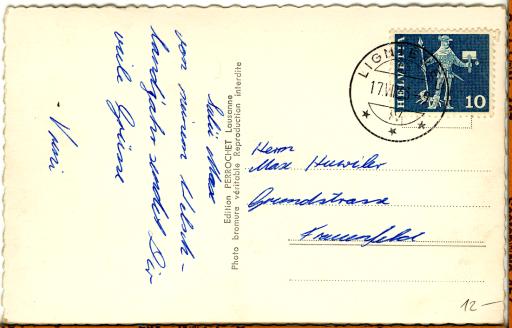 Salü Max
von meinem Welsch-
landjahr sendet Dir
viele Grüsse
Vreni
Edition PERROCHET Lausanne
Photo bromure véritable Reproduction interdite
HELVETIA
10
Herrn
Max Huwiler
Grundstrasse
Frauenfeld
12-